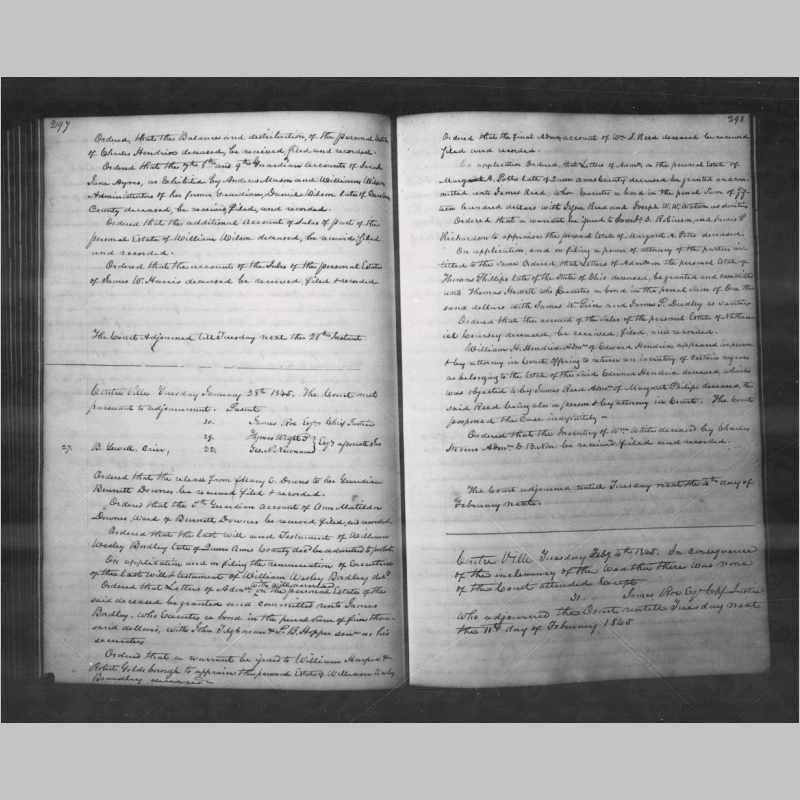 297
Ordered, that the Balance and distribution, of the personal Estate
of Charles Hendrix deceased, be received, filed and recorded.
Ordered that the 7th 8th and 9th Guardian accounts of Sarah
Jane Ayres, as Exhibited by Andrew Mason and William Wilson
Administrators of her former Guardian, Daniel Wilson late of Caroline
County deceased, be received, filed, and recorded.
Ordered that the additional Account of Sales of part of the
personal Estate of William Wilson deceased, be received filed
and recorded.
Ordered that the account of the Sales of the personal Estate
of James W. Harris deceased be received, filed & recorded
The Court Adjourned till Tuesday next the 28th Instant
Centre Ville Tuesday January 28th 1845. The Court met
pursuant to adjournment. Present
30. James Roe Esqr Chief Justice
29.
27. B. Jewell, Crier, 22. Geo. N. Newnam Esqrs associate Jus
Ordered that the release from C. Downs to her Guardian
Bennett Downes be received filed & recorded.
Ordered that the 5th Guardian account of Ann Matilda
Downes Ward of Bennett Downes be received filed, and recorded
Ordered that the last will and Testament of William
Wesley Bradley late of Queen Anns County decd be admitted to probate
On application and in filing the renunciation of Executorship
of the last Will & testament of William Wesley Bradley decd
Ordered that Letters of Admn with will annexed, on the personal Estate of the
said deceased be granted and committed unto James
Bradley, who Executes a bond in the penal sum of five thou-
sand dollars, with John and P. B. Hopper as his
securities
Ordered that a warrant be issued to William Harper &
Robert Goldsborough to appraise the personal Estate of William Wesley
Bradley deceased
298
Ordered that the final Admn account of Wm S. Reed deceased be received
filed and recorded.
On application Ordered, that Letters of Admn on the personal Estate of
Margaret A. Potts late of Queen Anns County deceased be granted and com-
mitted unto James Reed, who Executes a bond in the penal Sum of
teen hundred dollars with Reed and Joseph W. W. as securities
Ordered that a warrant be issued to Robinson and James P.
Richardson to appraise the personal Estate of Margaret A. Potts deceased.
On application, and in filing a power of attorney of the parties in-
titled to the same Ordered that Letters of Admn on the personal Estate of
Thomas Phillips late of the State of Ohio deceased, be granted and committed
unto Thomas Hewett who Executes a bond in the penal sum of One thou-
sand dollars with James W. and James P. Dudley as securities
Ordered that the account of the sales of the personal Estate of Nathan-
iel deceased, be received, filed, and recorded.
William H. Hendrix Admr of Edward Hendrix appeared in person
& by attorney in Court offering to return an inventory of certain negroes
as belonging to the Estate of the said Edward Hendrix deceased, which
was objected to by James Reed Admr of Margaret Philips deceased, the
said Reed being also in person & by attorney in Court. The Court
postponed the Case indefinitely
Ordered that the Inventory of Wm deceased by Charles
Stevens Admr D. B. Non be received filed and recorded.
The Court adjourned until Tuesday next the 4th day of
February next.
Centre Ville Tuesday Feby 4th 1845. In consequence
of the inclemency of the weather there was none
of the Court attended except
31. James Roe Esqr Chief Justice
Who adjourned the Court until Tuesday next
the 11th day of February 1845